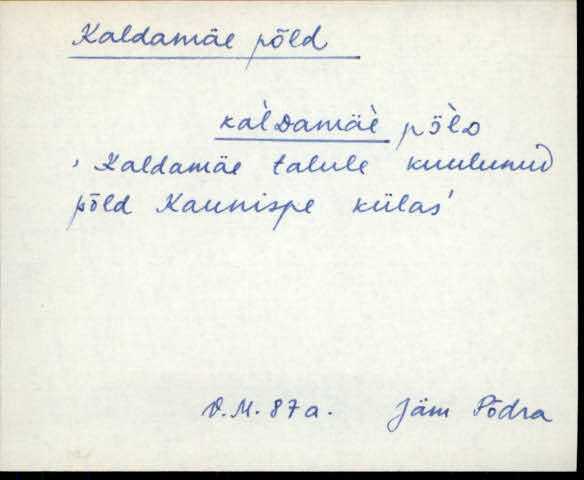 Kaldamäe põld
kaldamäe põlD
‚Kaldamäe talule kuulunud
põld Kaunispe külas'
V.M. 87a. Jäm Põdra